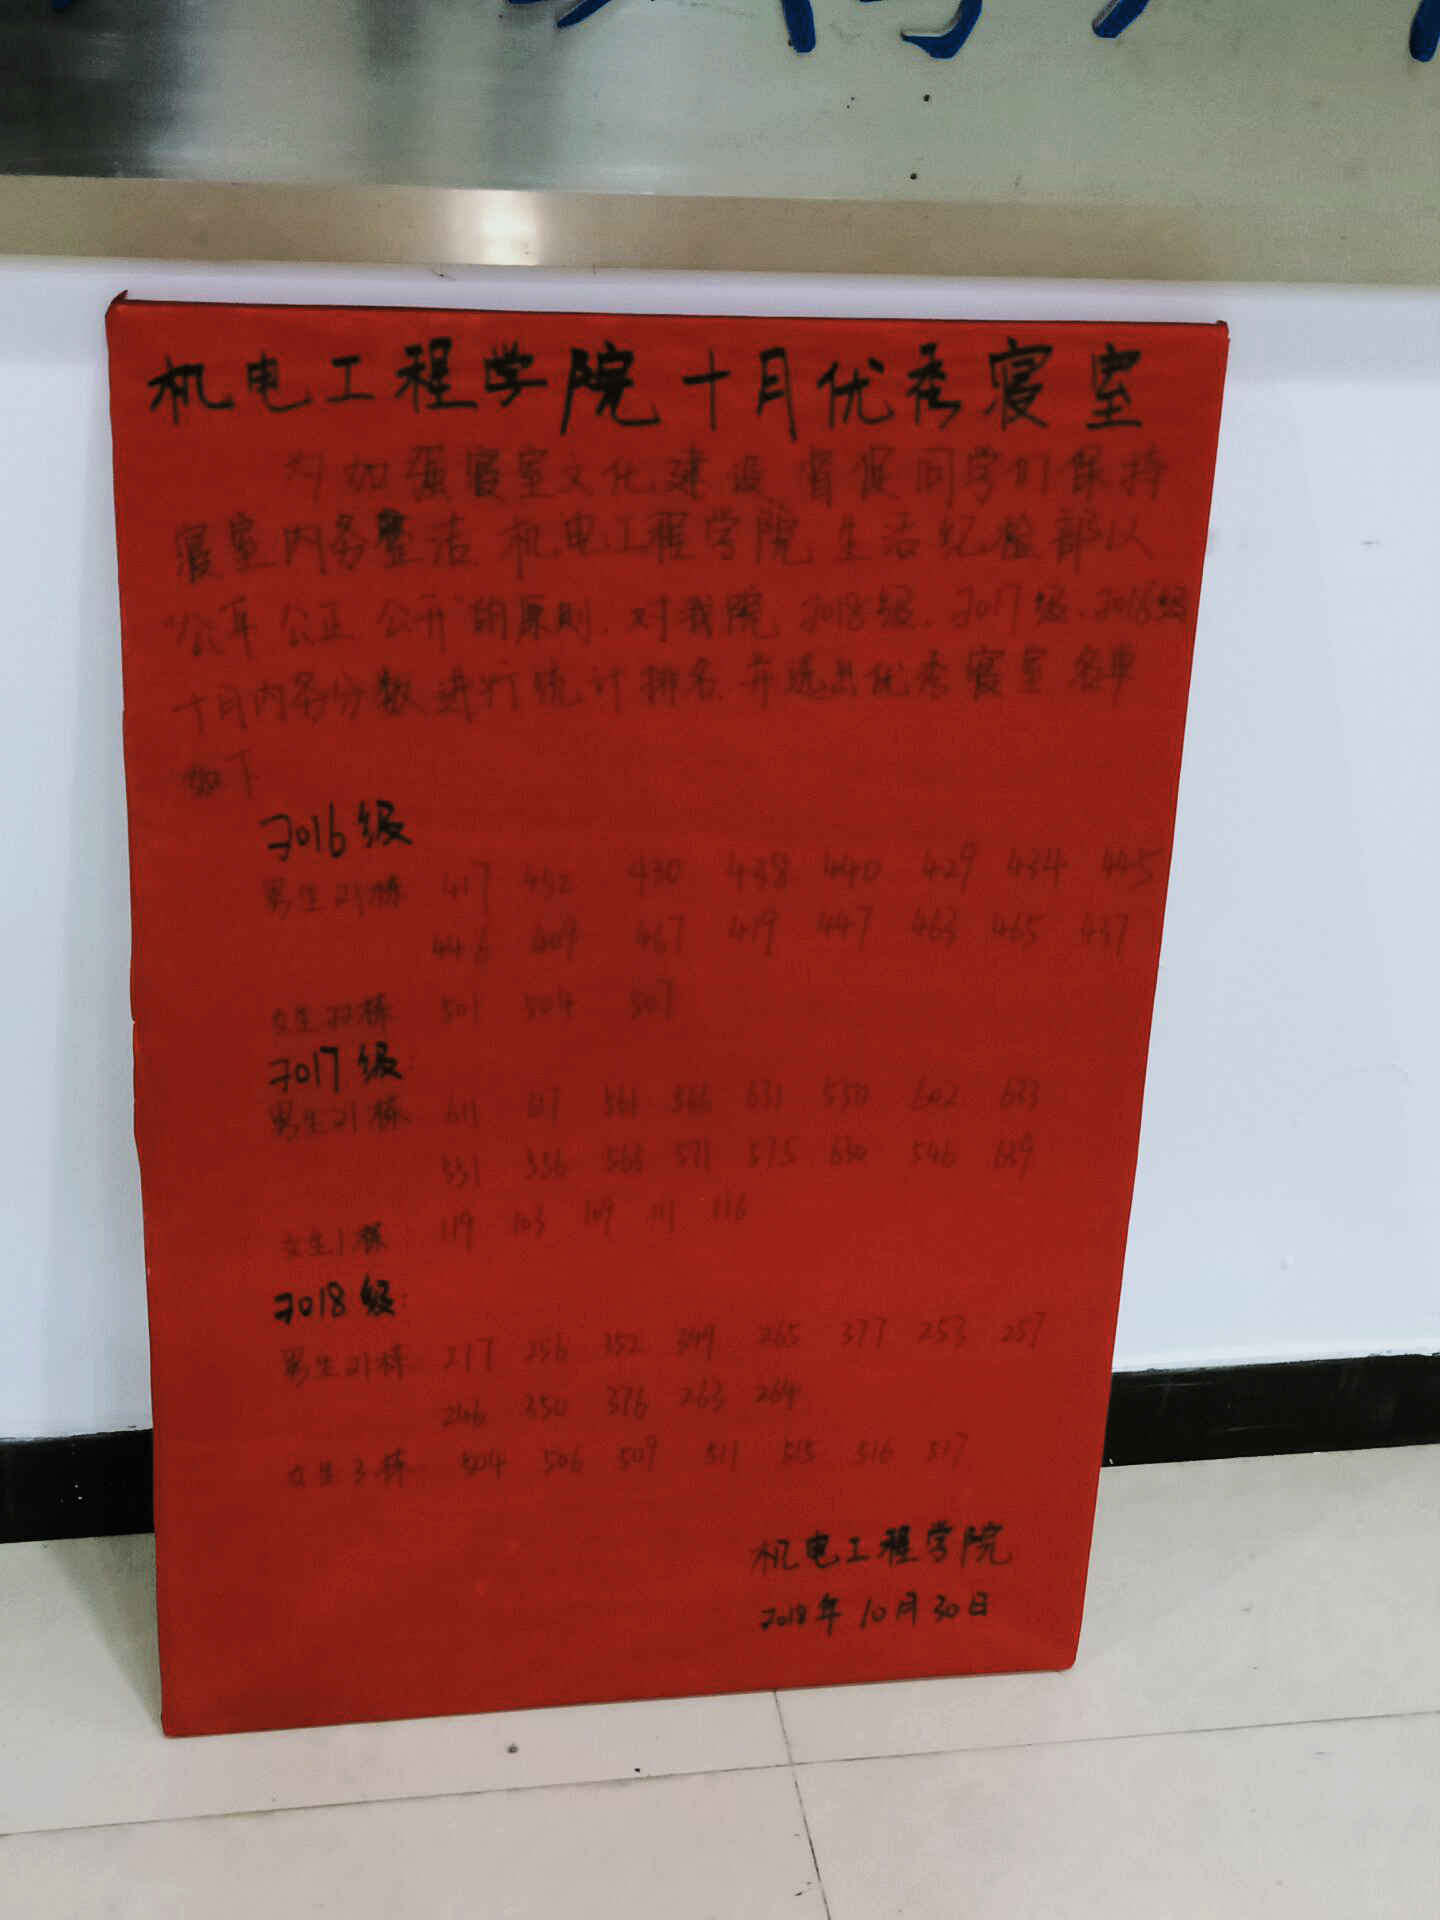 机电工程学院十月优秀寝室
为加强寝室文化建设,督促同学们保持
寝室内务整洁,机电工程学院生活纪检部以
“公平、公正、公开”的原则,对我院2018级、2017级、2016级
十月内务分数进行统计排名,并选出优秀寝室,名单
如下:
2016级
男生21栋 417 452 430 438 440 429 434 445
446 409 467 419 447 463 465 437
女生22栋 501 504 507
2017级:
男生21栋 611 617 561 566 631 550 602 633
551 556 563 571 575 630 546 639
女生1栋: 119 103 109 111 116
2018级:
男生21栋: 277 256 352 349 265 377 253 257
246 350 376 263 264
女生3栋 504 506 509 511 515 516 517
机电工程学院
2018年10月30日